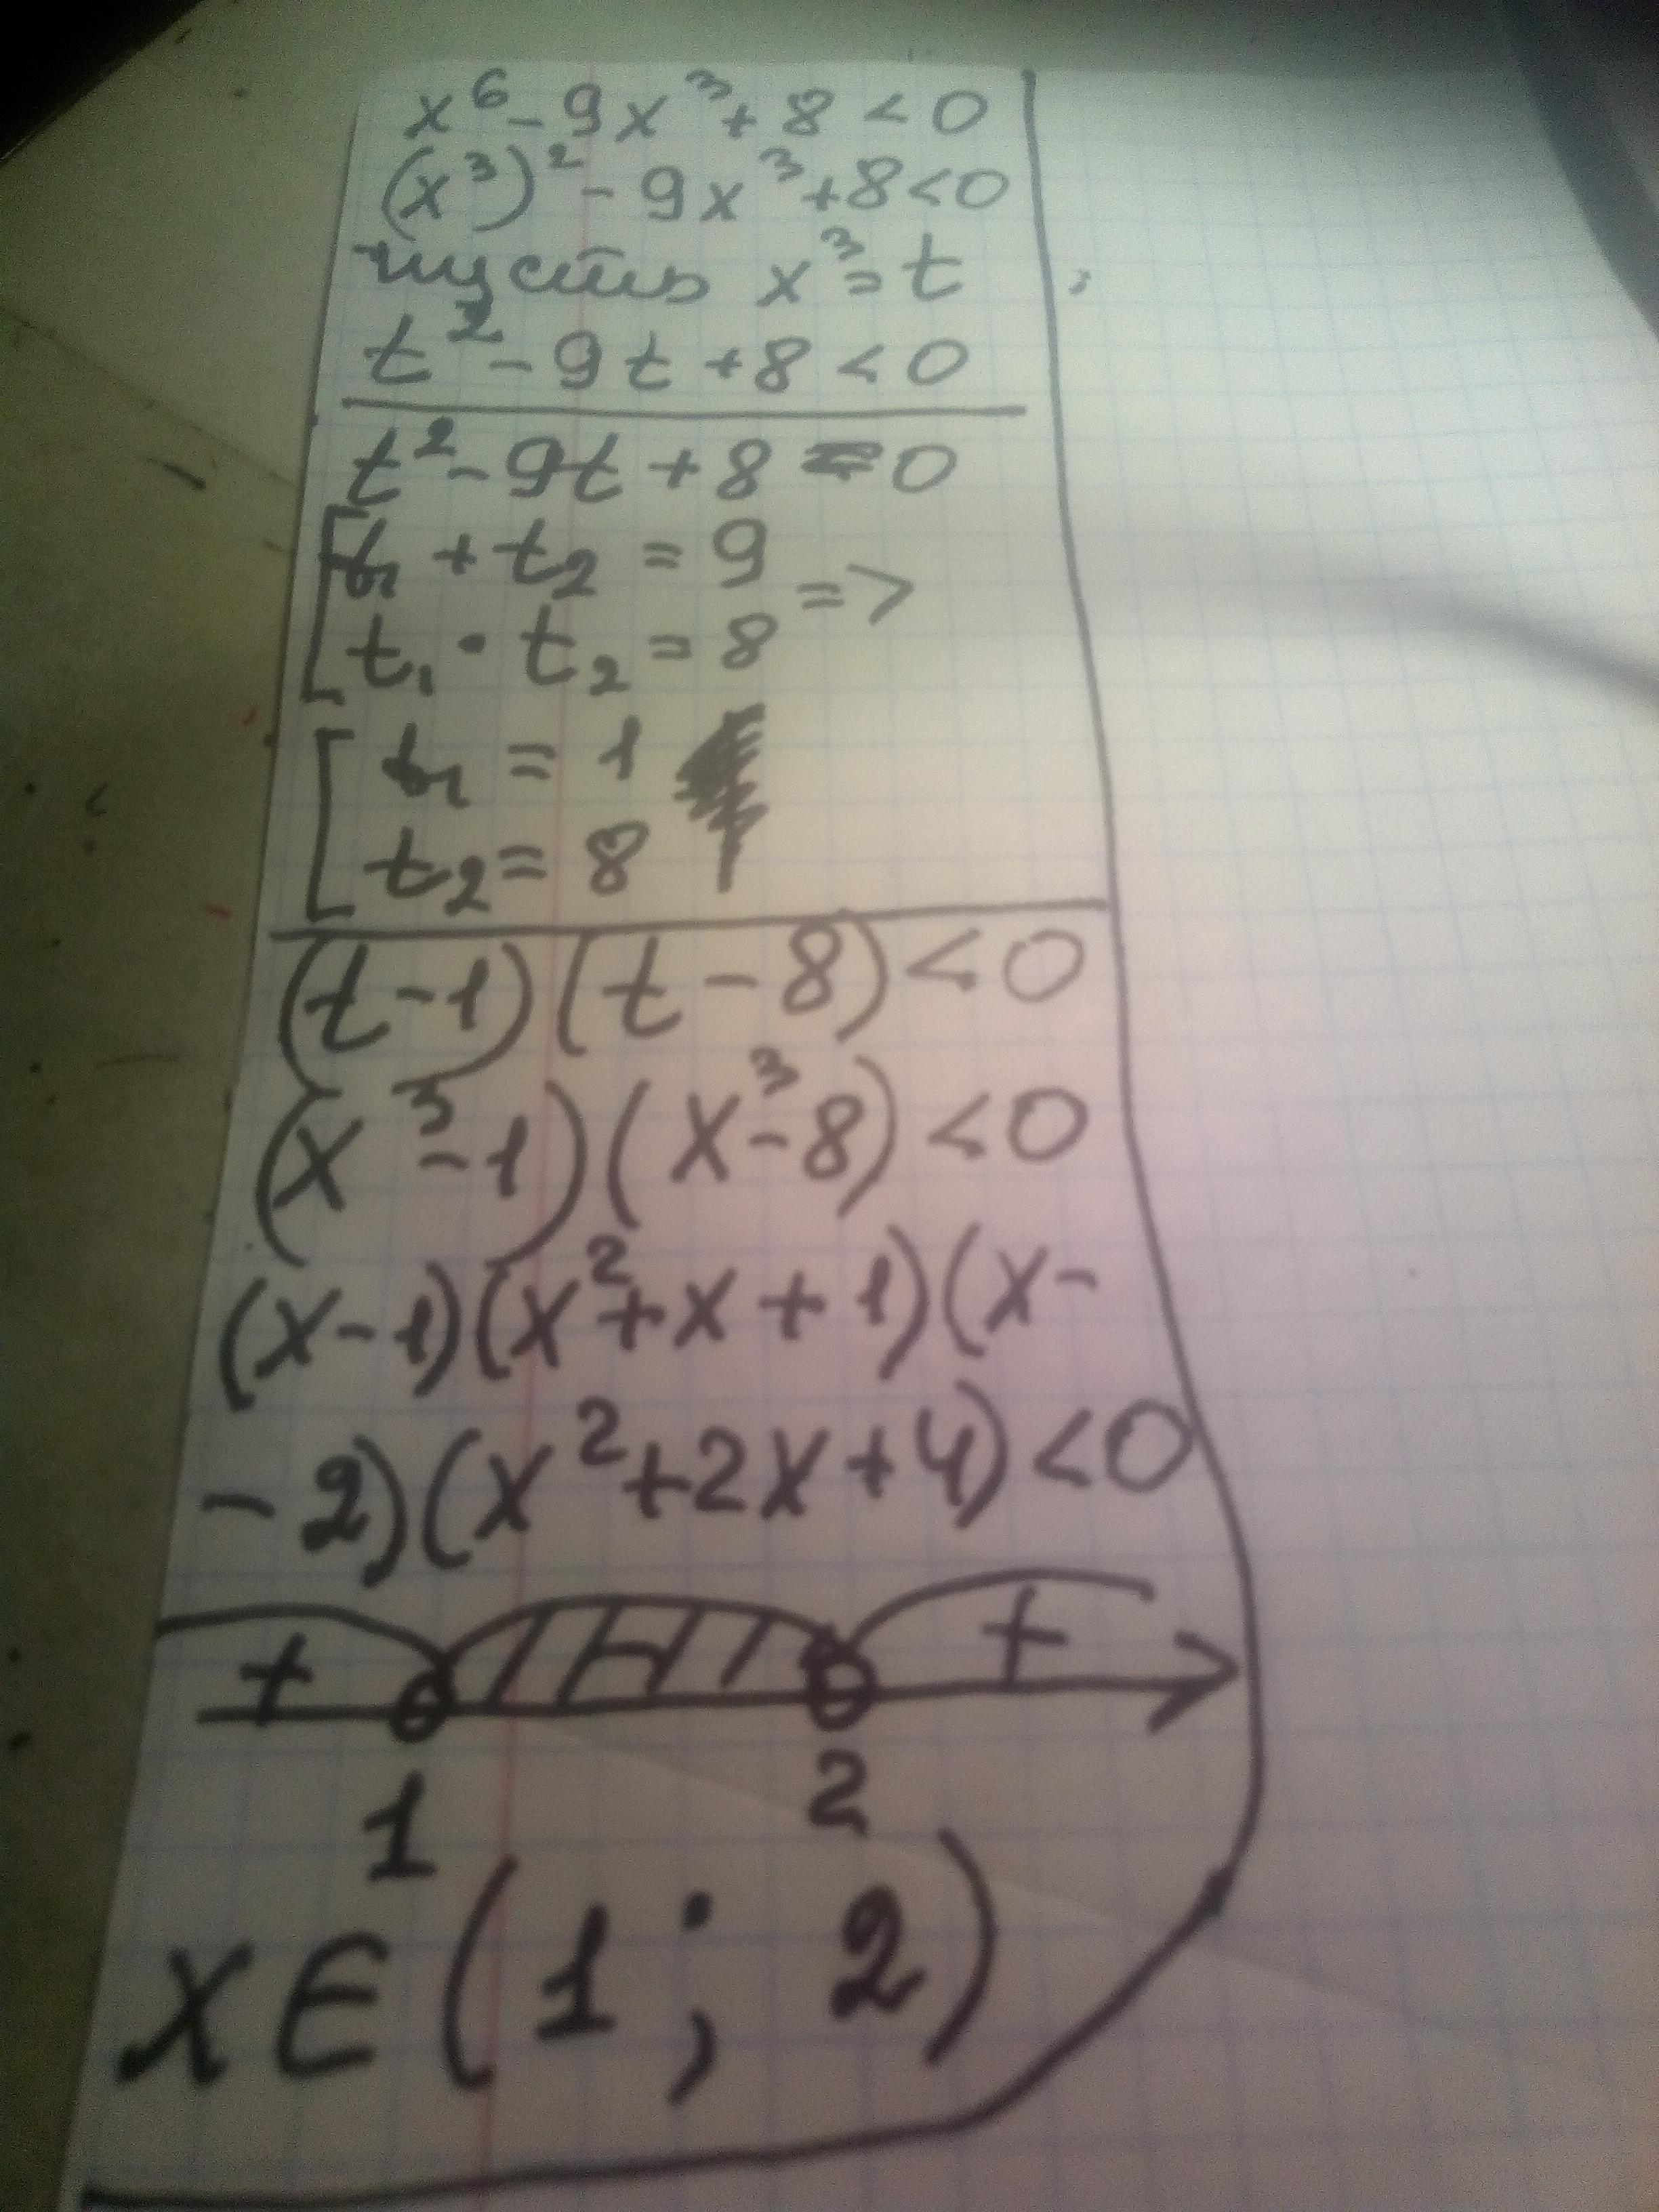 x⁶ - 9x³ + 8 < 0
(x³)² - 9x³ + 8 < 0
пусть x³ = t
t² - 9t + 8 < 0
t² - 9t + 8 = 0
[t₁ + t₂ = 9
t₁ · t₂ = 8 =>
[t₁ = 1
t₂ = 8
(t - 1)(t - 8) < 0
(x³ - 1)(x³ - 8) < 0
(x - 1)(x² + x + 1)(x -
- 2)(x² + 2x + 4) < 0
+ - +
1 2
x ∈ (1 ; 2)